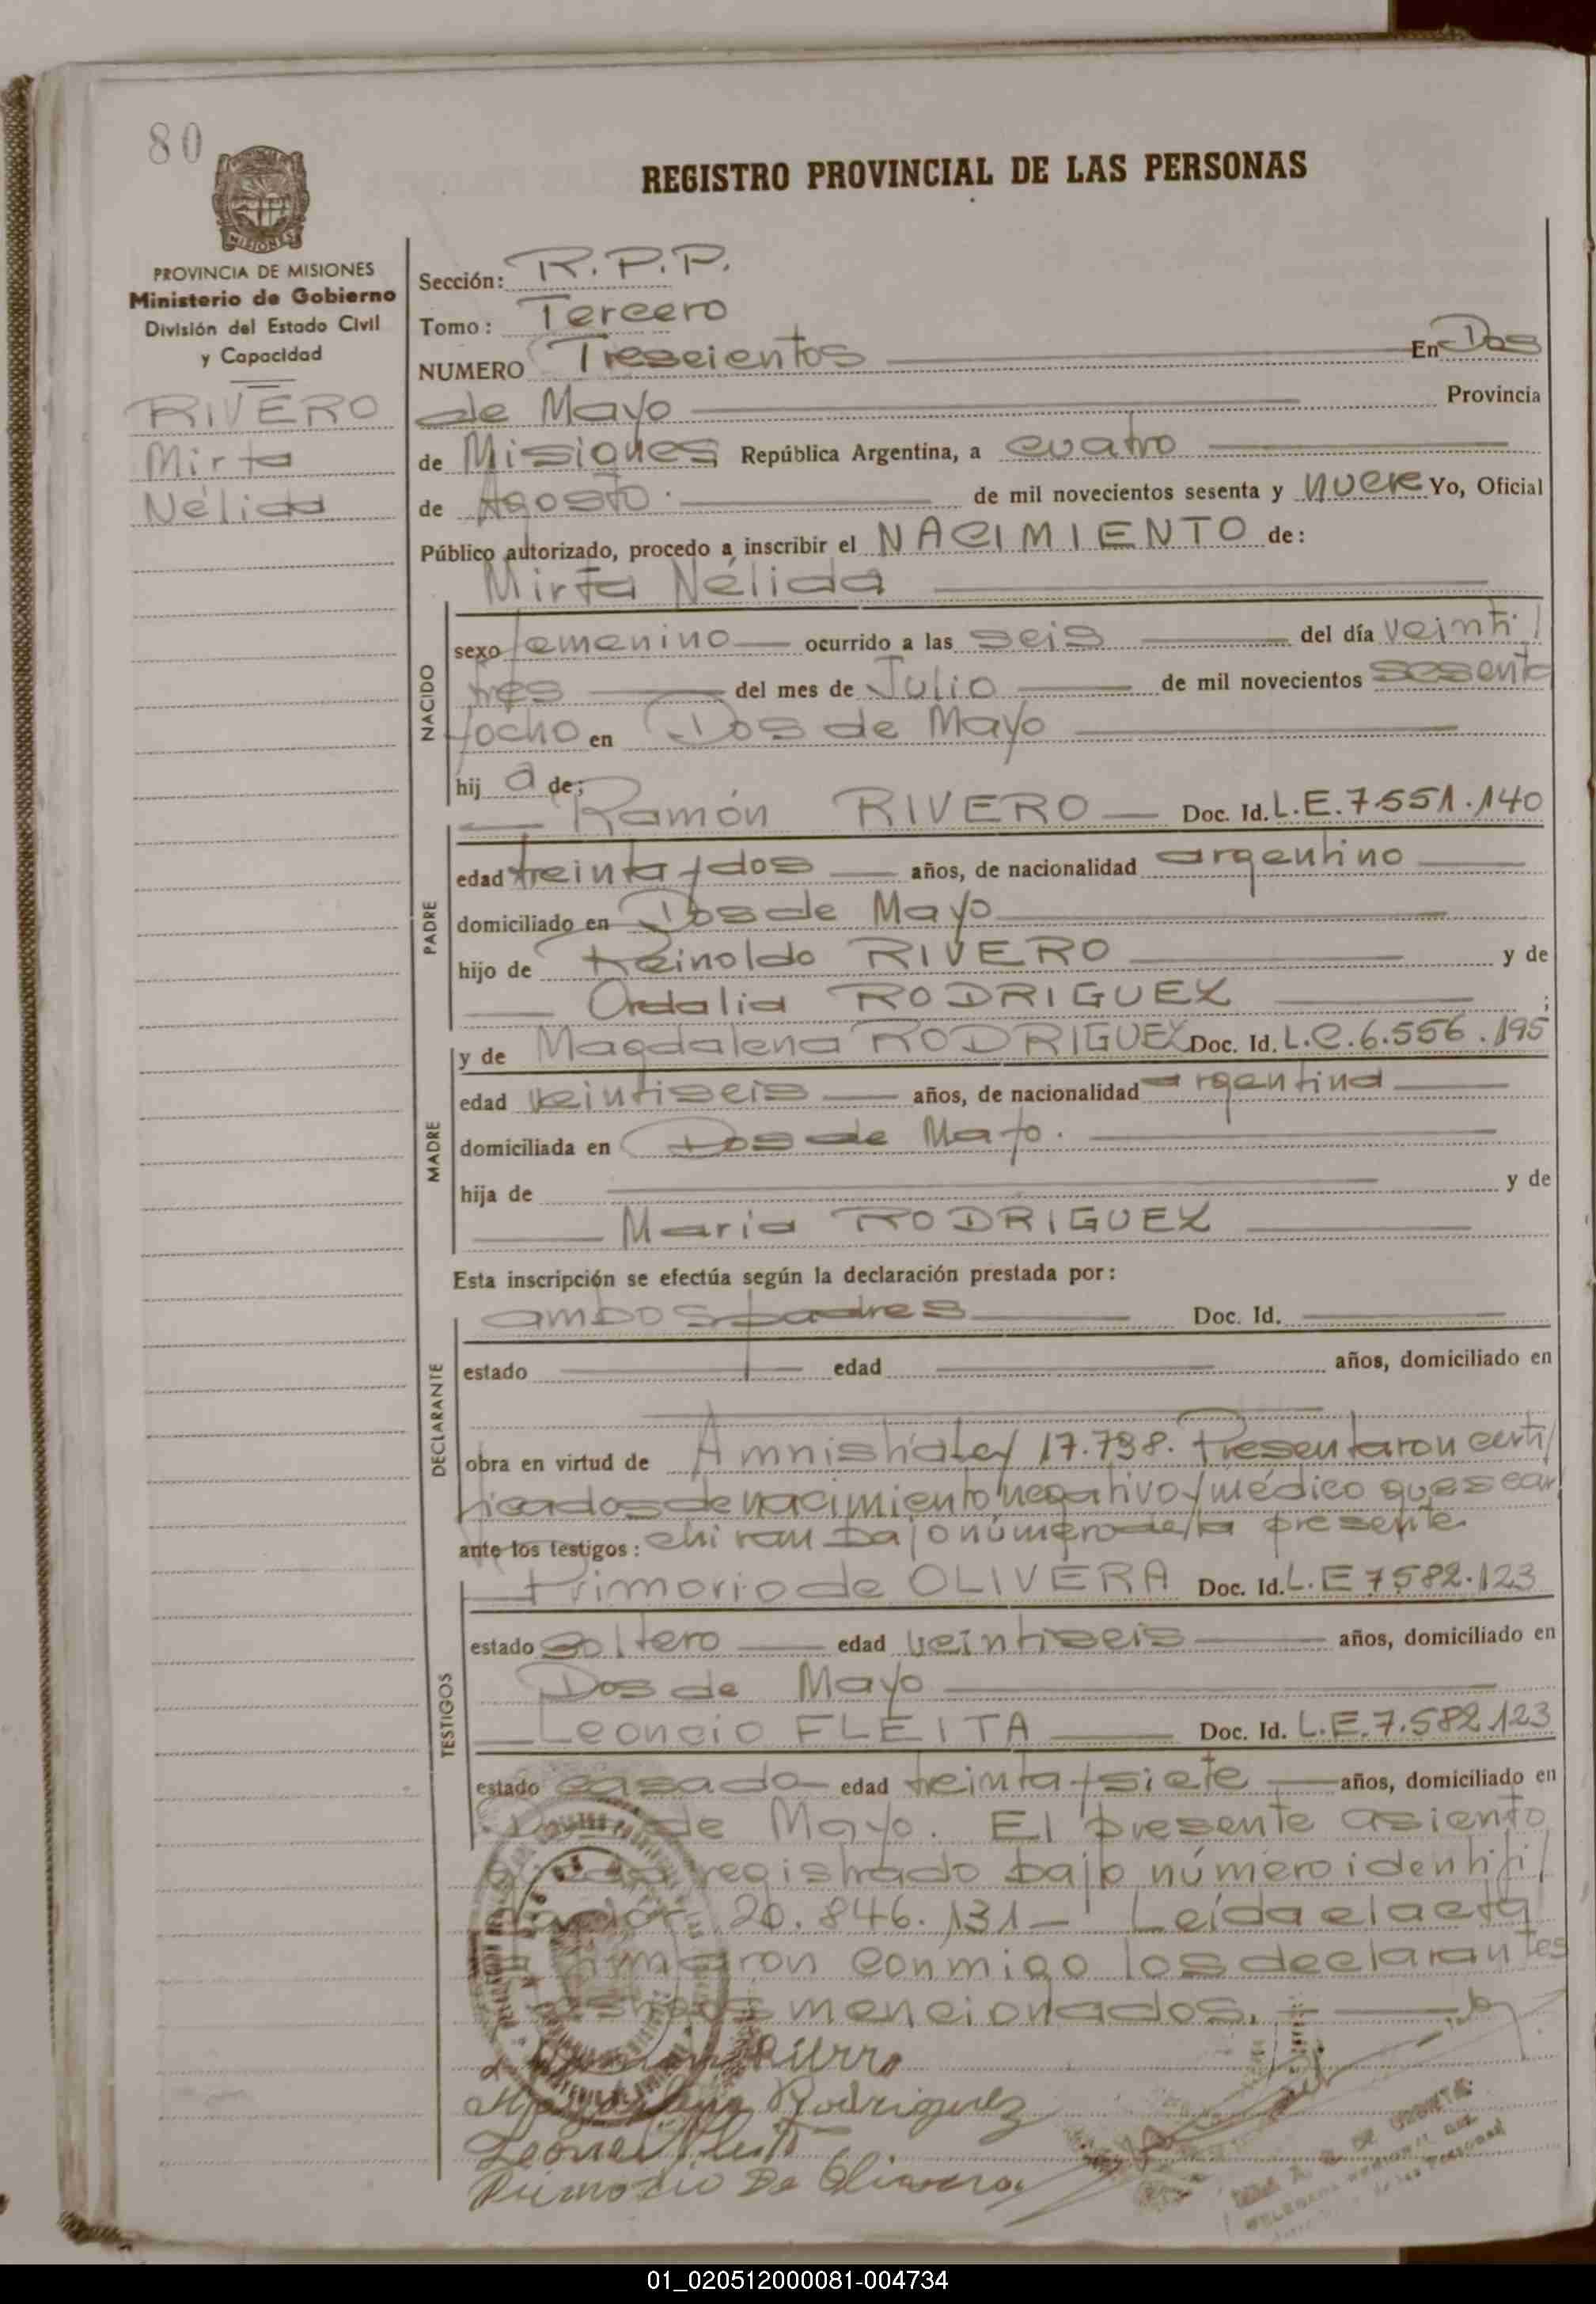 80
REGISTRO PROVINCIAL DE LAS PERSONAS
MISIONES
PROVINCIA DE MISIONES
Ministerio de Gobierno
División del Estado Civil
y Capacidad
RIVERO
Mirta
Nélida
Sección: R.P.P.
Tomo: Tercero
NUMERO Trescientos En Dos
de Mayo Provincia
de Misiones República Argentina, a cuatro
de Agosto. de mil novecientos sesenta y nueve Yo, Oficial
Público autorizado, procedo a inscribir el NACIMIENTO de:
Mirta Nélida
NACIDO
sexo femenino ocurrido a las seis del día veinti/
tres del mes de Julio de mil novecientos sesenta
yocho en Dos de Mayo
hij a de:
PADRE
Ramón RIVERO Doc. Id. L.E.7551.140
edad treinta y dos años, de nacionalidad argentino
domiciliado en Dos de Mayo
hijo de Reinoldo RIVERO y de
Ordalia RODRIGUEZ ;
MADRE
y de Magdalena RODRIGUEZ Doc. Id. L.C.6.556.195
edad veintiseis años, de nacionalidad argentina
domiciliada en Dos de Mayo.
hija de y de
Maria RODRIGUEZ
Esta inscripción se efectúa según la declaración prestada por:
DECLARANTE
ambos padres Doc. Id.
estado edad años, domiciliado en
obra en virtud de Amnistia Ley 17.738. Presentaron certi/
ficados de nacimiento negativo y médico que se ar
ante los testigos: chivan bajo número de la presente
TESTIGOS
Primorio de OLIVERA Doc. Id. L.E 7582.123
estado soltero edad veintiseis años, domiciliado en
Dos de Mayo
Leoncio FLEITA Doc. Id. L.E.7.582.123
estado casado edad treinta y siete años, domiciliado en
Dos de Mayo. El presente asiento
registrado bajo número identifi/
cador 20.846.131 - Leida el acta
firmaron conmigo los declarantes
testigos mencionados.
Rivero
Magdalena Rodriguez
Primorio De Olivera
01_020512000081-004734